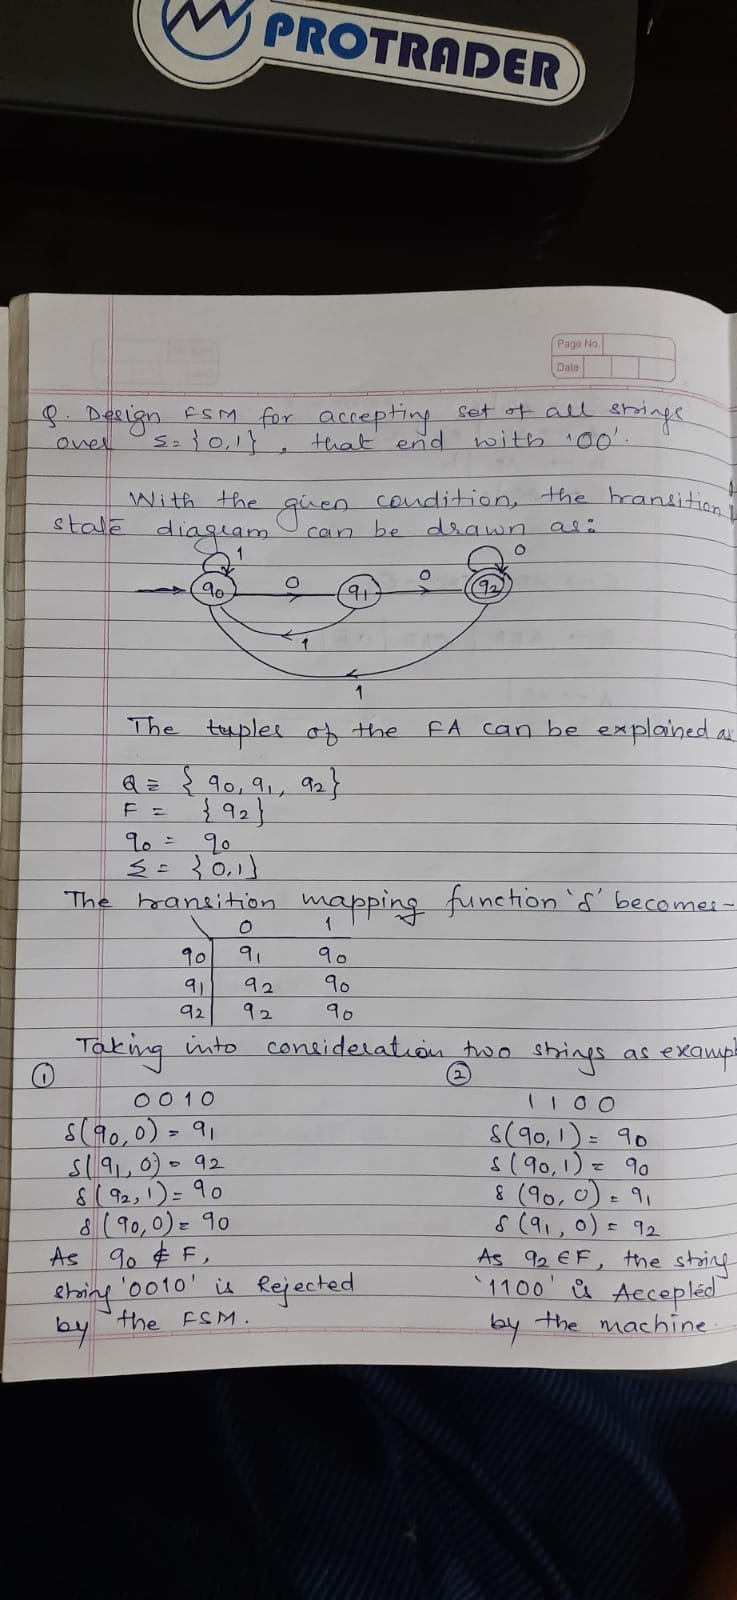 PROTRADER
Page No.
Date
Q. Design FSM for accepting set of all strings
over Σ = {0,1} , that end with '00'.
With the given condition, the transition
state diagram can be drawn as:
1 0
q0 0 q1 0 q2
1
1
The tuples of the FA can be explained as
Q = { q0, q1, q2}
F = {q2}
q0 = q0
Σ = {0,1}
The transition mapping function 'δ' becomes-
0 1
q0 q1 q0
q1 q2 q0
q2 q2 q0
Taking into consideration two strings as exampl
① ②
0010
δ(q0,0) = q1
δ(q1,0) = q2
δ(q2,1) = q0
δ(q0,0) = q0
As q0 ∉ F,
string '0010' is Rejected
by the FSM.
1100
δ(q0,1) = q0
δ(q0,1) = q0
δ(q0,0) = q1
δ(q1,0) = q2
As q2 ∈ F, the string
'1100' is Accepted
by the machine.